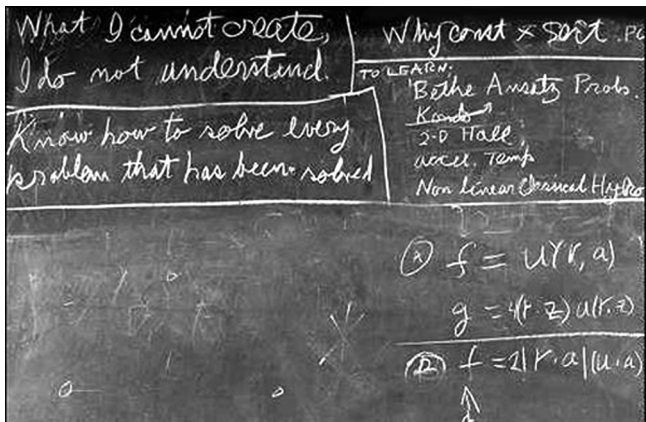 What I cannot create,
I do not understand.
Know how to solve every
problem that has been solved
Why const × sort .PG
TO LEARN:
Bethe Ansatz Probs.
Kondo
2-D Hall
accel. Temp
Non linear Classical Hydro
Ⓐ f = u(r, a)
g = 4(r·z) u(r, z)
Ⓑ f = 2|r·a|(u·a)